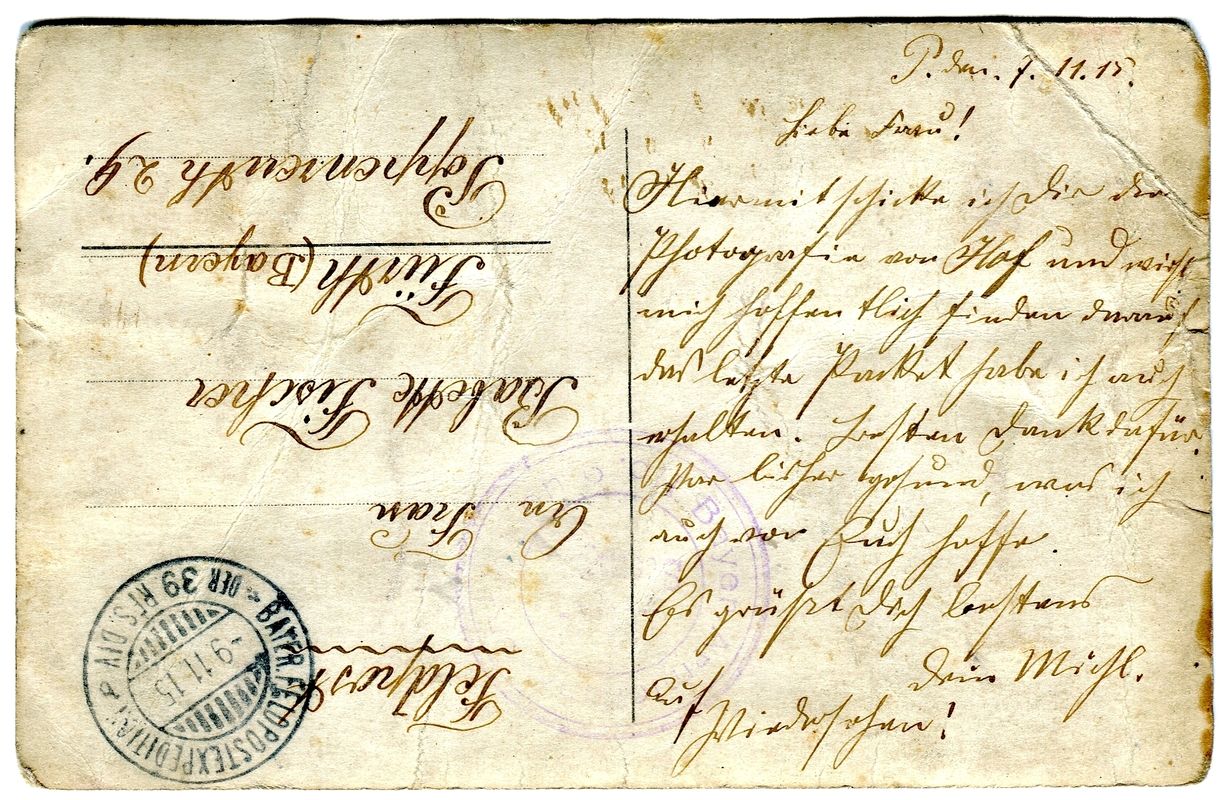 P. den. 7. 11. 15.
Liebe Frau!
Hiermit schicke ich Dir die
Photografie von Hof und wirst
mich hoffentlich finden darauf
das letzte Packet habe ich auch
erhalten. Besten Dank dafür.
bisher gesund, was ich
auch von Euch hoffe.
Es grüßt Dich bestens
Dein Michl.
Auf
Wiedersehen!
Feldpost
An Frau
Babette Fischer
Fürth (Bayern)
Poppenreuth 29.
BAYER. FELDPOSTEXPEDITION DER 39 RES. DIV.
-9.11.15
Bayer